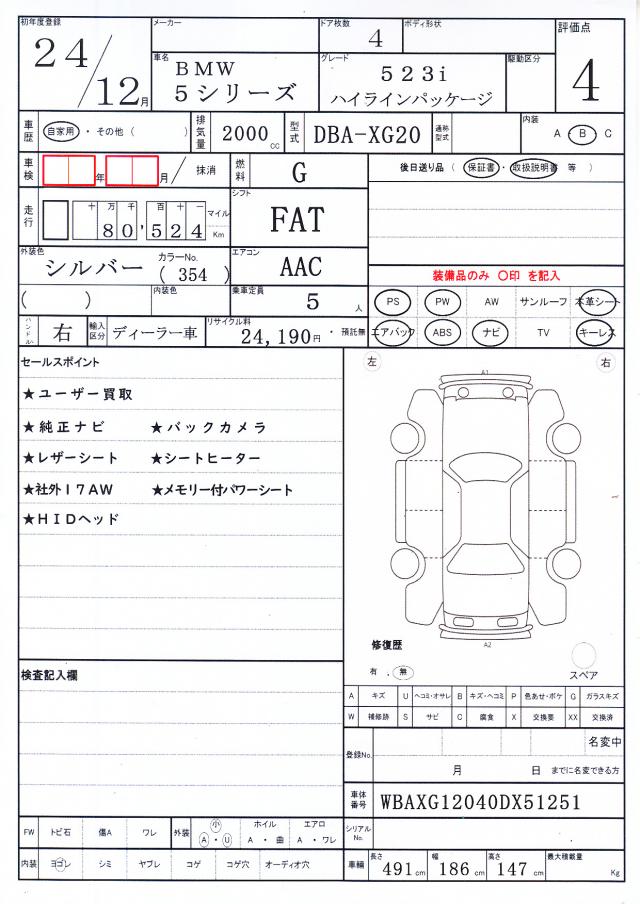 初年度登録 メーカー ドア枚数 ボディ形状 評価点
24/12月 4
車名 グレード 駆動区分
BMW 523i 4
5シリーズ ハイラインパッケージ
車歴 自家用・その他( ) 排気量 2000cc 型式 DBA-XG20 通称型式 内装 A・B・C
車検 年 月/抹消 燃料 G 後日送り品( 保証書・取扱説明書 等 )
走行 十万千百十一 マイル シフト
80,524 Km FAT
外装色 カラーNo. エアコン
シルバー ( 354 ) AAC 装備品のみ 〇印 を記入
( ) 内装色 乗車定員 5人 PS PW AW サンルーフ 本革シート
ハンドル 右 輸入区分 ディーラー車 リサイクル料 24,190円・預託無 エアバック ABS ナビ TV キーレス
セールスポイント 左 右
A1
★ユーザー買取
★純正ナビ ★バックカメラ
★レザーシート ★シートヒーター
★社外17AW ★メモリー付パワーシート
★HIDヘッド
修復歴 A2
有・無 スペア
検査記入欄
A キズ U ヘコミ・オサレ B キズ・ヘコミ P 色あせ・ボケ G ガラスキズ
W 補修跡 S サビ C 腐食 X 交換要 XX 交換済
登録No. 名変中
月 日 までに名変できる方
車体番号 WBAXG12040DX51251
FW トビ石 傷A ワレ 外装 小 A・U ホイル A・曲 エアロ A・ワレ シリアルNo.
内装 ヨゴレ シミ ヤブレ コゲ コゲ穴 オーディオ穴 車輌 長さ 491cm 幅 186cm 高さ 147cm 最大積載量 Kg